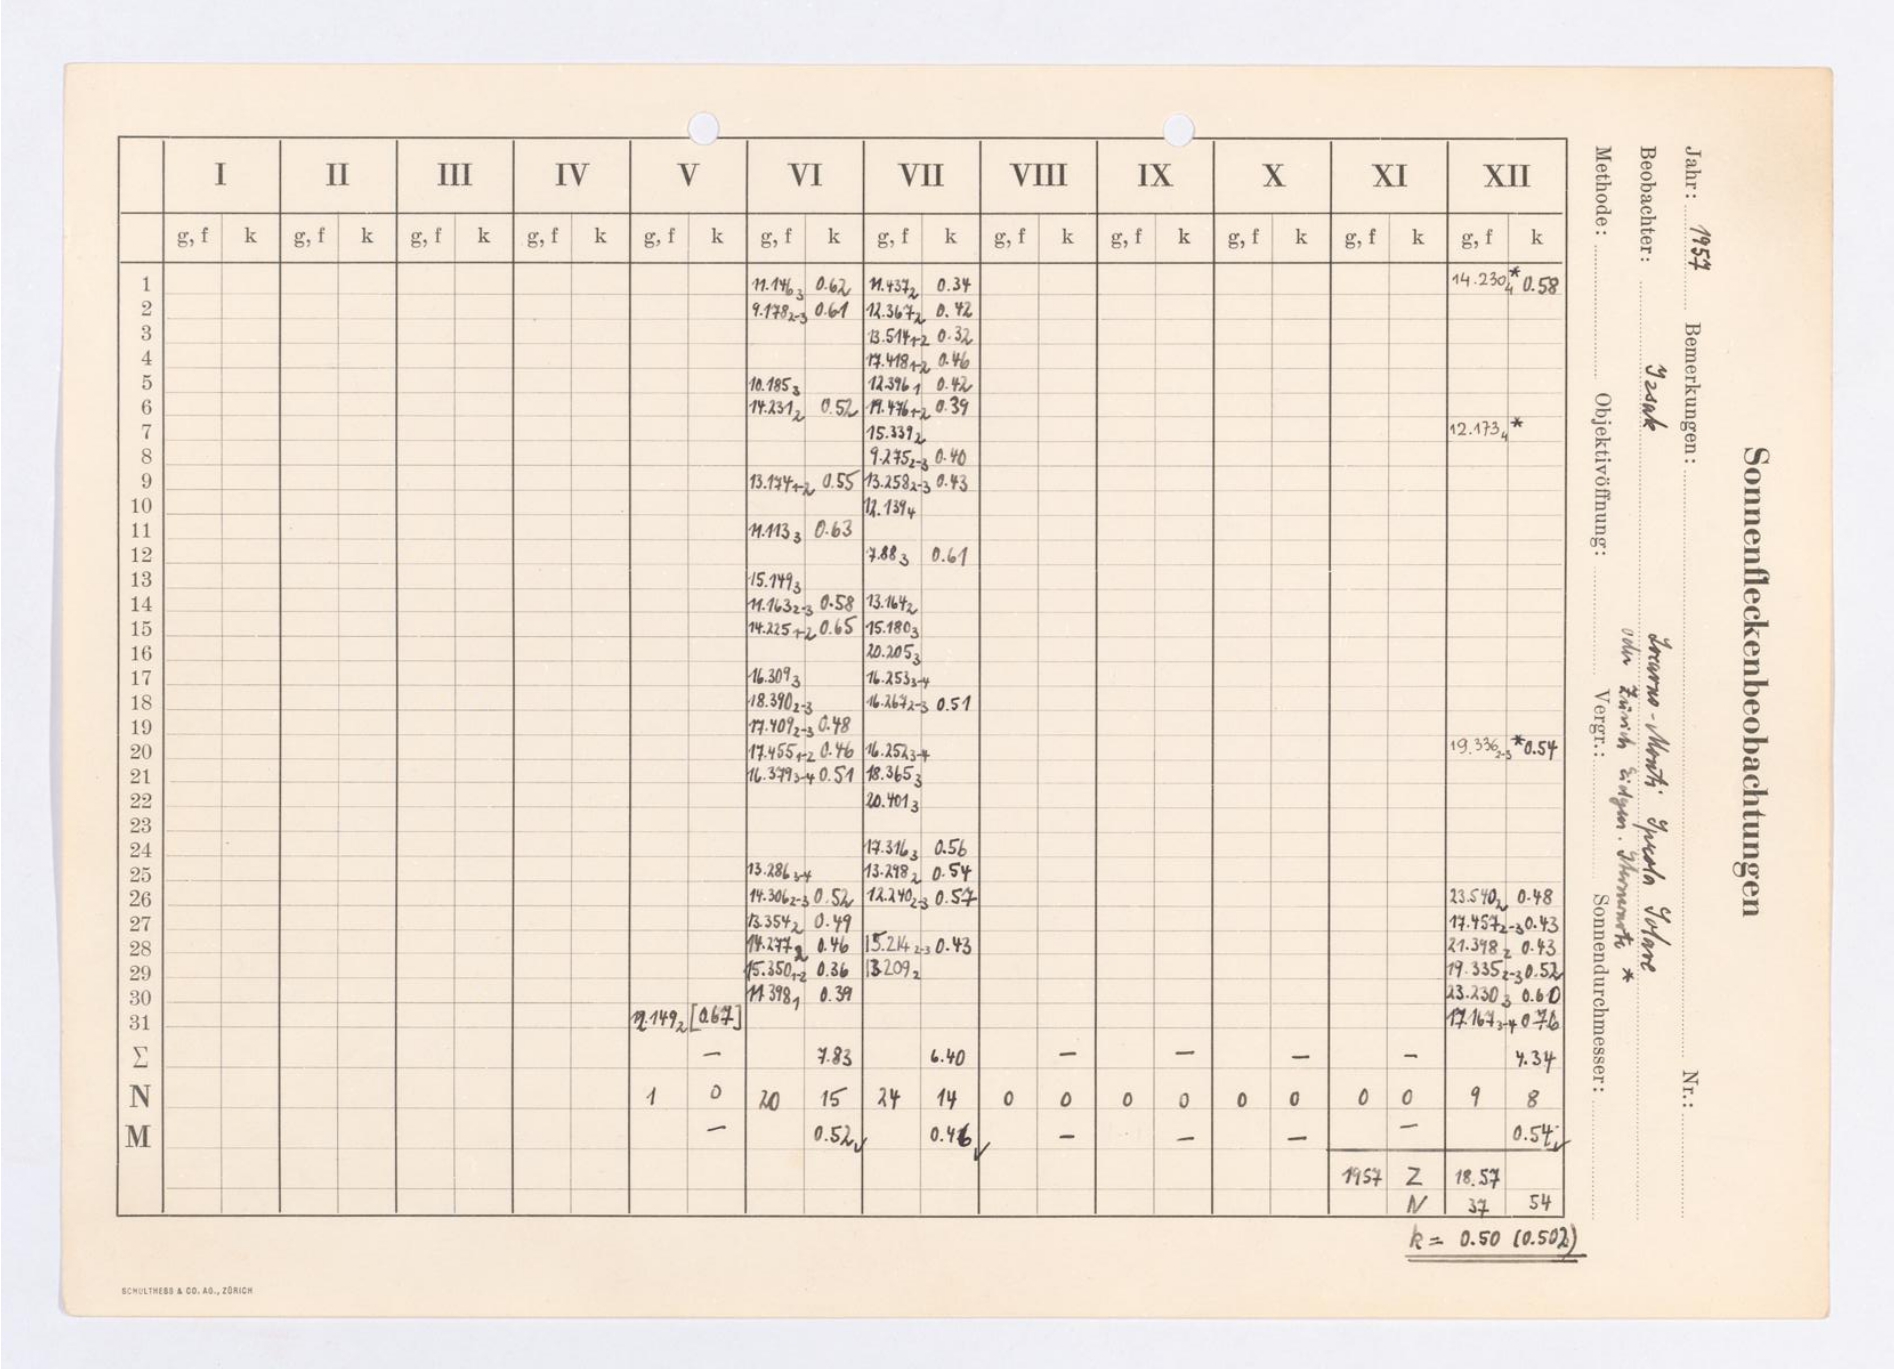 Sonnenfleckenbeobachtungen
Jahr: 1957 Bemerkungen: Nr.:
Beobachter: Izsak Locarno-Monti Specola Solare
oder Zürich Eidgen. Sternwarte *
Methode: Objektivöffnung: Vergr.: Sonnendurchmesser:
I II III IV V VI VII VIII IX X XI XII
g, f k g, f k g, f k g, f k g, f k g, f k g, f k g, f k g, f k g, f k g, f k g, f k
1 11.146₃ 0.62 11.437₂ 0.34 14.230₄* 0.58
2 9.178₂₋₃ 0.61 12.367₂ 0.42
3 13.514₁₋₂ 0.32
4 17.418₁₋₂ 0.46
5 10.185₃ 12.396₁ 0.42
6 14.231₂ 0.52 19.476₁₋₂ 0.39
7 15.339₂ 12.173₄*
8 9.275₂₋₃ 0.40
9 13.174₁₋₂ 0.55 13.258₂₋₃ 0.43
10 12.139₄
11 11.113₃ 0.63
12 7.88₃ 0.61
13 15.149₃
14 11.163₂₋₃ 0.58 13.164₂
15 14.225₁₋₂ 0.65 15.180₃
16 20.205₃
17 16.309₃ 16.253₃₋₄
18 18.390₂₋₃ 16.267₂₋₃ 0.51
19 17.409₂₋₃ 0.48
20 17.455₁₋₂ 0.46 16.252₃₋₄ 19.336₂₋₃* 0.54
21 16.379₃₋₄ 0.51 18.365₃
22 20.401₃
23
24 17.316₃ 0.56
25 13.286₃₋₄ 13.298₂ 0.54
26 14.306₂₋₃ 0.52 12.240₂₋₃ 0.57 23.540₂ 0.48
27 13.354₂ 0.49 17.457₂₋₃ 0.43
28 14.277₂ 0.46 15.214₂₋₃ 0.43 21.398₂ 0.43
29 15.350₁₋₂ 0.36 13.209₂ 19.335₂₋₃ 0.52
30 11.398₁ 0.39 23.230₃ 0.60
31 12.149₂ [0.67] 17.167₃₋₄ 0.76
Σ — 7.83 6.40 — — — — 4.34
N 1 0 20 15 24 14 0 0 0 0 0 0 0 0 9 8
M — 0.52✓ 0.46✓ — — — — 0.54✓
1957 Z 18.57
N 37 54
k = 0.50 (0.502)
SCHULTHESS & CO. AG., ZÜRICH